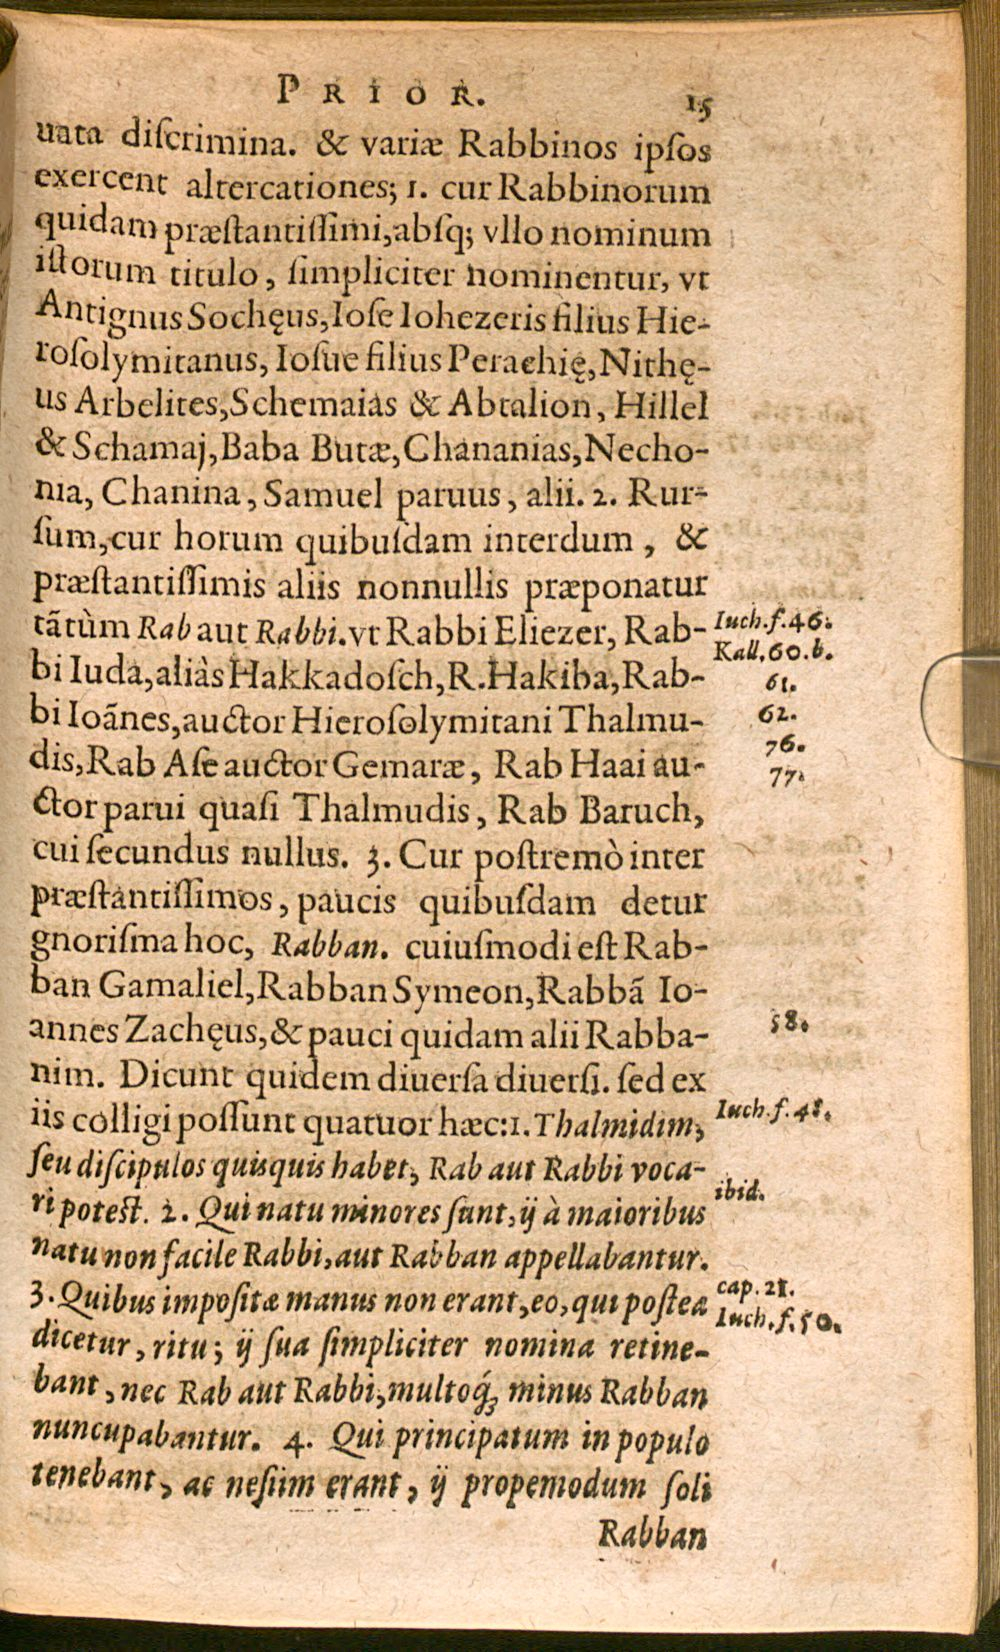 PRIOR. 15
uata diſcrimina. & variæ Rabbinos ipſos
exercent altercationes; 1. cur Rabbinorum
quidam præſtantiſſimi, abſq; vllo nominum
iſtorum titulo, ſimpliciter nominentur, vt
Antignus Sochęus, Ioſe Iohezeris filius Hie-
roſolymitanus, Ioſue filius Perachię, Nithę-
us Arbelites, Schemaias & Abtalion, Hillel
& Schamaj, Baba Butæ, Chananias, Necho-
nia, Chanina, Samuel paruus, alii. 2. Rur-
ſum, cur horum quibuſdam interdum, &
præſtantiſſimis aliis nonnullis præponatur
tãtùm Rab aut Rabbi. vt Rabbi Eliezer, Rab-
Iuch. f. 46.
Kall. 60. b.
bi Iuda, aliàs Hakkadoſch, R. Hakiba, Rab-
61.
bi Ioãnes, auctor Hieroſolymitani Thalmu-
62.
76.
dis, Rab Aſe auctor Gemaræ, Rab Haai au-
77.
ctor parui quaſi Thalmudis, Rab Baruch,
cui ſecundus nullus. 3. Cur poſtremò inter
præſtantiſſimos, paucis quibuſdam detur
gnoriſma hoc, Rabban. cuiuſmodi eſt Rab-
ban Gamaliel, Rabban Symeon, Rabbã Io-
annes Zachęus, & pauci quidam alii Rabba-
58.
nim. Dicunt quidem diuerſa diuerſi. ſed ex
iis colligi poſſunt quatuor hæc: 1. Thalmidim,
Iuch. f. 48.
ſeu diſcipulos quiſquis habet, Rab aut Rabbi voca-
ri poteſt. 2. Qui natu minores ſunt, ij à maioribus
ibid.
natu non facile Rabbi, aut Rabban appellabantur.
3. Quibus impoſitæ manus non erant, eo, qui poſtea
cap. 21.
Iuch. f. 50.
dicetur, ritu; ij ſua ſimpliciter nomina retine-
bant, nec Rab aut Rabbi, multoq́; minus Rabban
nuncupabantur. 4. Qui principatum in populo
tenebant, ac neſiim erant, ij propemodum ſoli
Rabban